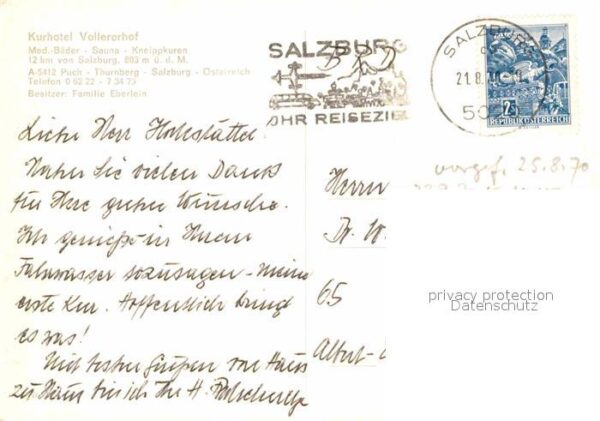 Kurhotel Vollererhof
Med.-Bäder - Sauna - Kneippkuren
12 km von Salzburg, 803 m ü. d. M.
A-5412 Puch - Thurnberg - Salzburg - Österreich
Telefon 0 62 22 - 7 34 75
Besitzer: Familie Eberlein
SALZBURG
IHR REISEZIEL
SALZBURG
21.8.
2 S
REPUBLIK ÖSTERREICH
25.8.70
Lieber Herr
Haben Sie vielen Dank
für Ihre guten Wünsche.
Ich genieße in Ihrem
Fahrwasser sozusagen - meine
erste Kur. Hoffentlich bringt
es was!
Mit besten Grüßen von Haus
zu Haus bin ich Ihr H.
Herrn
Dr. W.
65
Albert-
privacy protection
Datenschutz